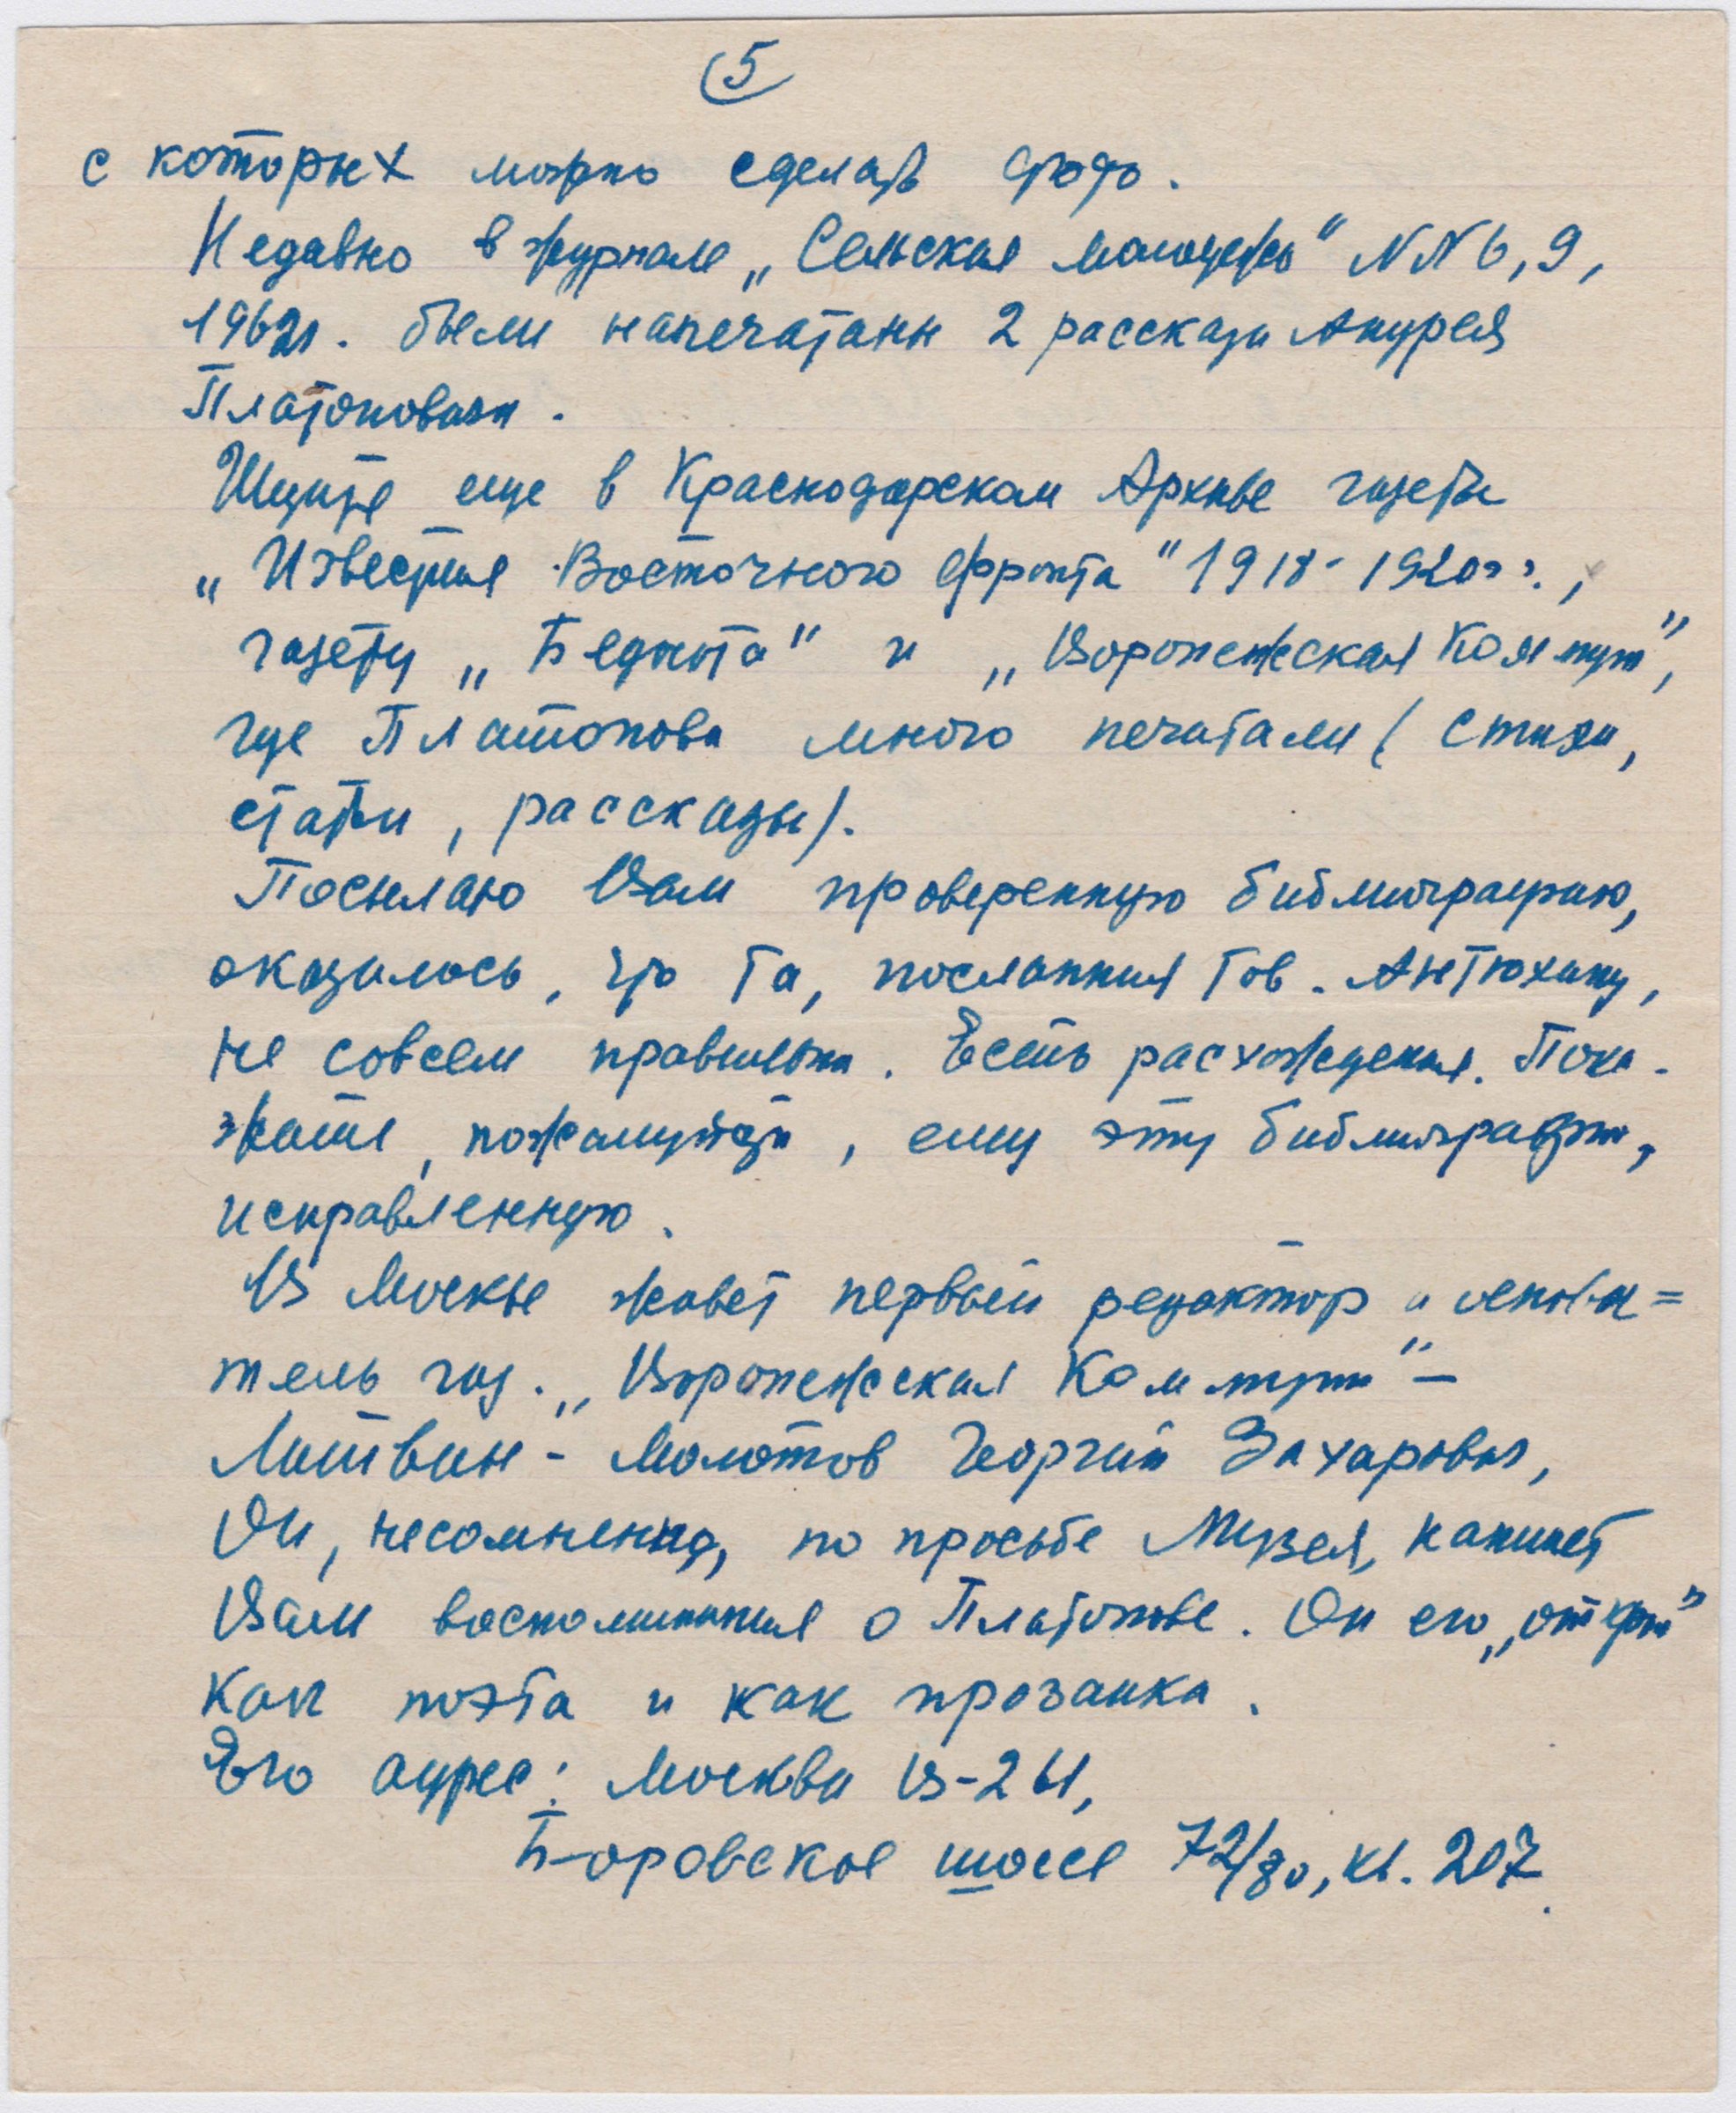 5
с которых можно сделать фото.
Недавно в журнале „Сельская молодежь" NN 6, 9,
1962г. были напечатаны 2 рассказа Андрея
Платоновича.
Ищите еще в Краснодарском Архиве газеты
„Известия Восточного фронта" 1918-1920гг.,
газету „Беднота" и „Воронежская Коммуна",
где Платонова много печатали (стихи,
статьи, рассказы).
Посылаю Вам проверенную библиографию,
оказалось, что та, посланная тов. Антюхину,
не совсем правильна. Есть расхождения. Пока-
жите, пожалуйста, ему эту библиографию,
исправленную.
В Москве живет первый редактор и основа=
тель газ. „Воронежская Коммуна" –
Литвин-Молотов Георгий Захарович,
Он, несомненно, по просьбе Музея, напишет
Вам воспоминания о Платонове. Он его „открыл"
как поэта и как прозаика.
Его адрес: Москва В-261,
Боровское шоссе 72/80, кв. 207.